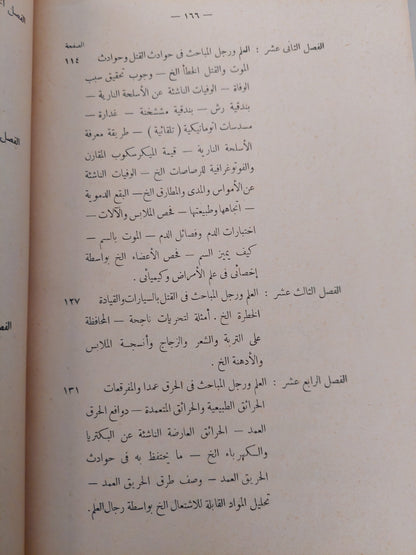 — ١٦٦ —
الصفحة
الفصل الثانى عشر : العلم ورجل المباحث فى حوادث القتل وحوادث ١١٤
الموت والقتل الخطأ الخ — وجوب تحقيق سبب
الوفاة — الوفيات الناشئة عن الأسلحة النارية —
بندقية رش — بندقية مششخنة — غدارة —
مسدسات اتوماتيكية ( تلقائية ) — طريقة معرفة
الأسلحة النارية — قيمة الميكرسكوب المقارن
والفوتوغرافية للرصاصات الخ — الوفيات الناشئة
عن الأمواس والمدى والمطارق الخ — البقع الدموية
— اتجاهها وطبيعتها — فحص الملابس والآلات —
اختبارات الدم وفصائل الدم — الموت بالسم —
كيف يميز السم — فحص الأعضاء الخ بواسطة
إخصائى فى علم الأمراض وكيميائى .
الفصل الثالث عشر : العلم ورجل المباحث فى القتل بالسيارات والقيادة ١٢٧
الخطرة الخ . أمثلة لتحريات ناجحة — المحافظة
على التربة والشعر والزجاج وأنسجة الملابس
والأدهنة الخ .
الفصل الرابع عشر : العلم ورجل المباحث فى الحرق عمدا والمفرقعات ١٣١
الحرائق الطبيعية والحرائق المتعمدة — دوافع الحرق
العمد — الحرائق العارضة الناشئة عن البكتريا
والكهرباء الخ — ما يحتفظ به فى حوادث
الحريق العمد — وصف طرق الحريق العمد —
تحليل المواد القابلة للاشتعال الخ بواسطة رجال العلم.
الفصل
الفصل